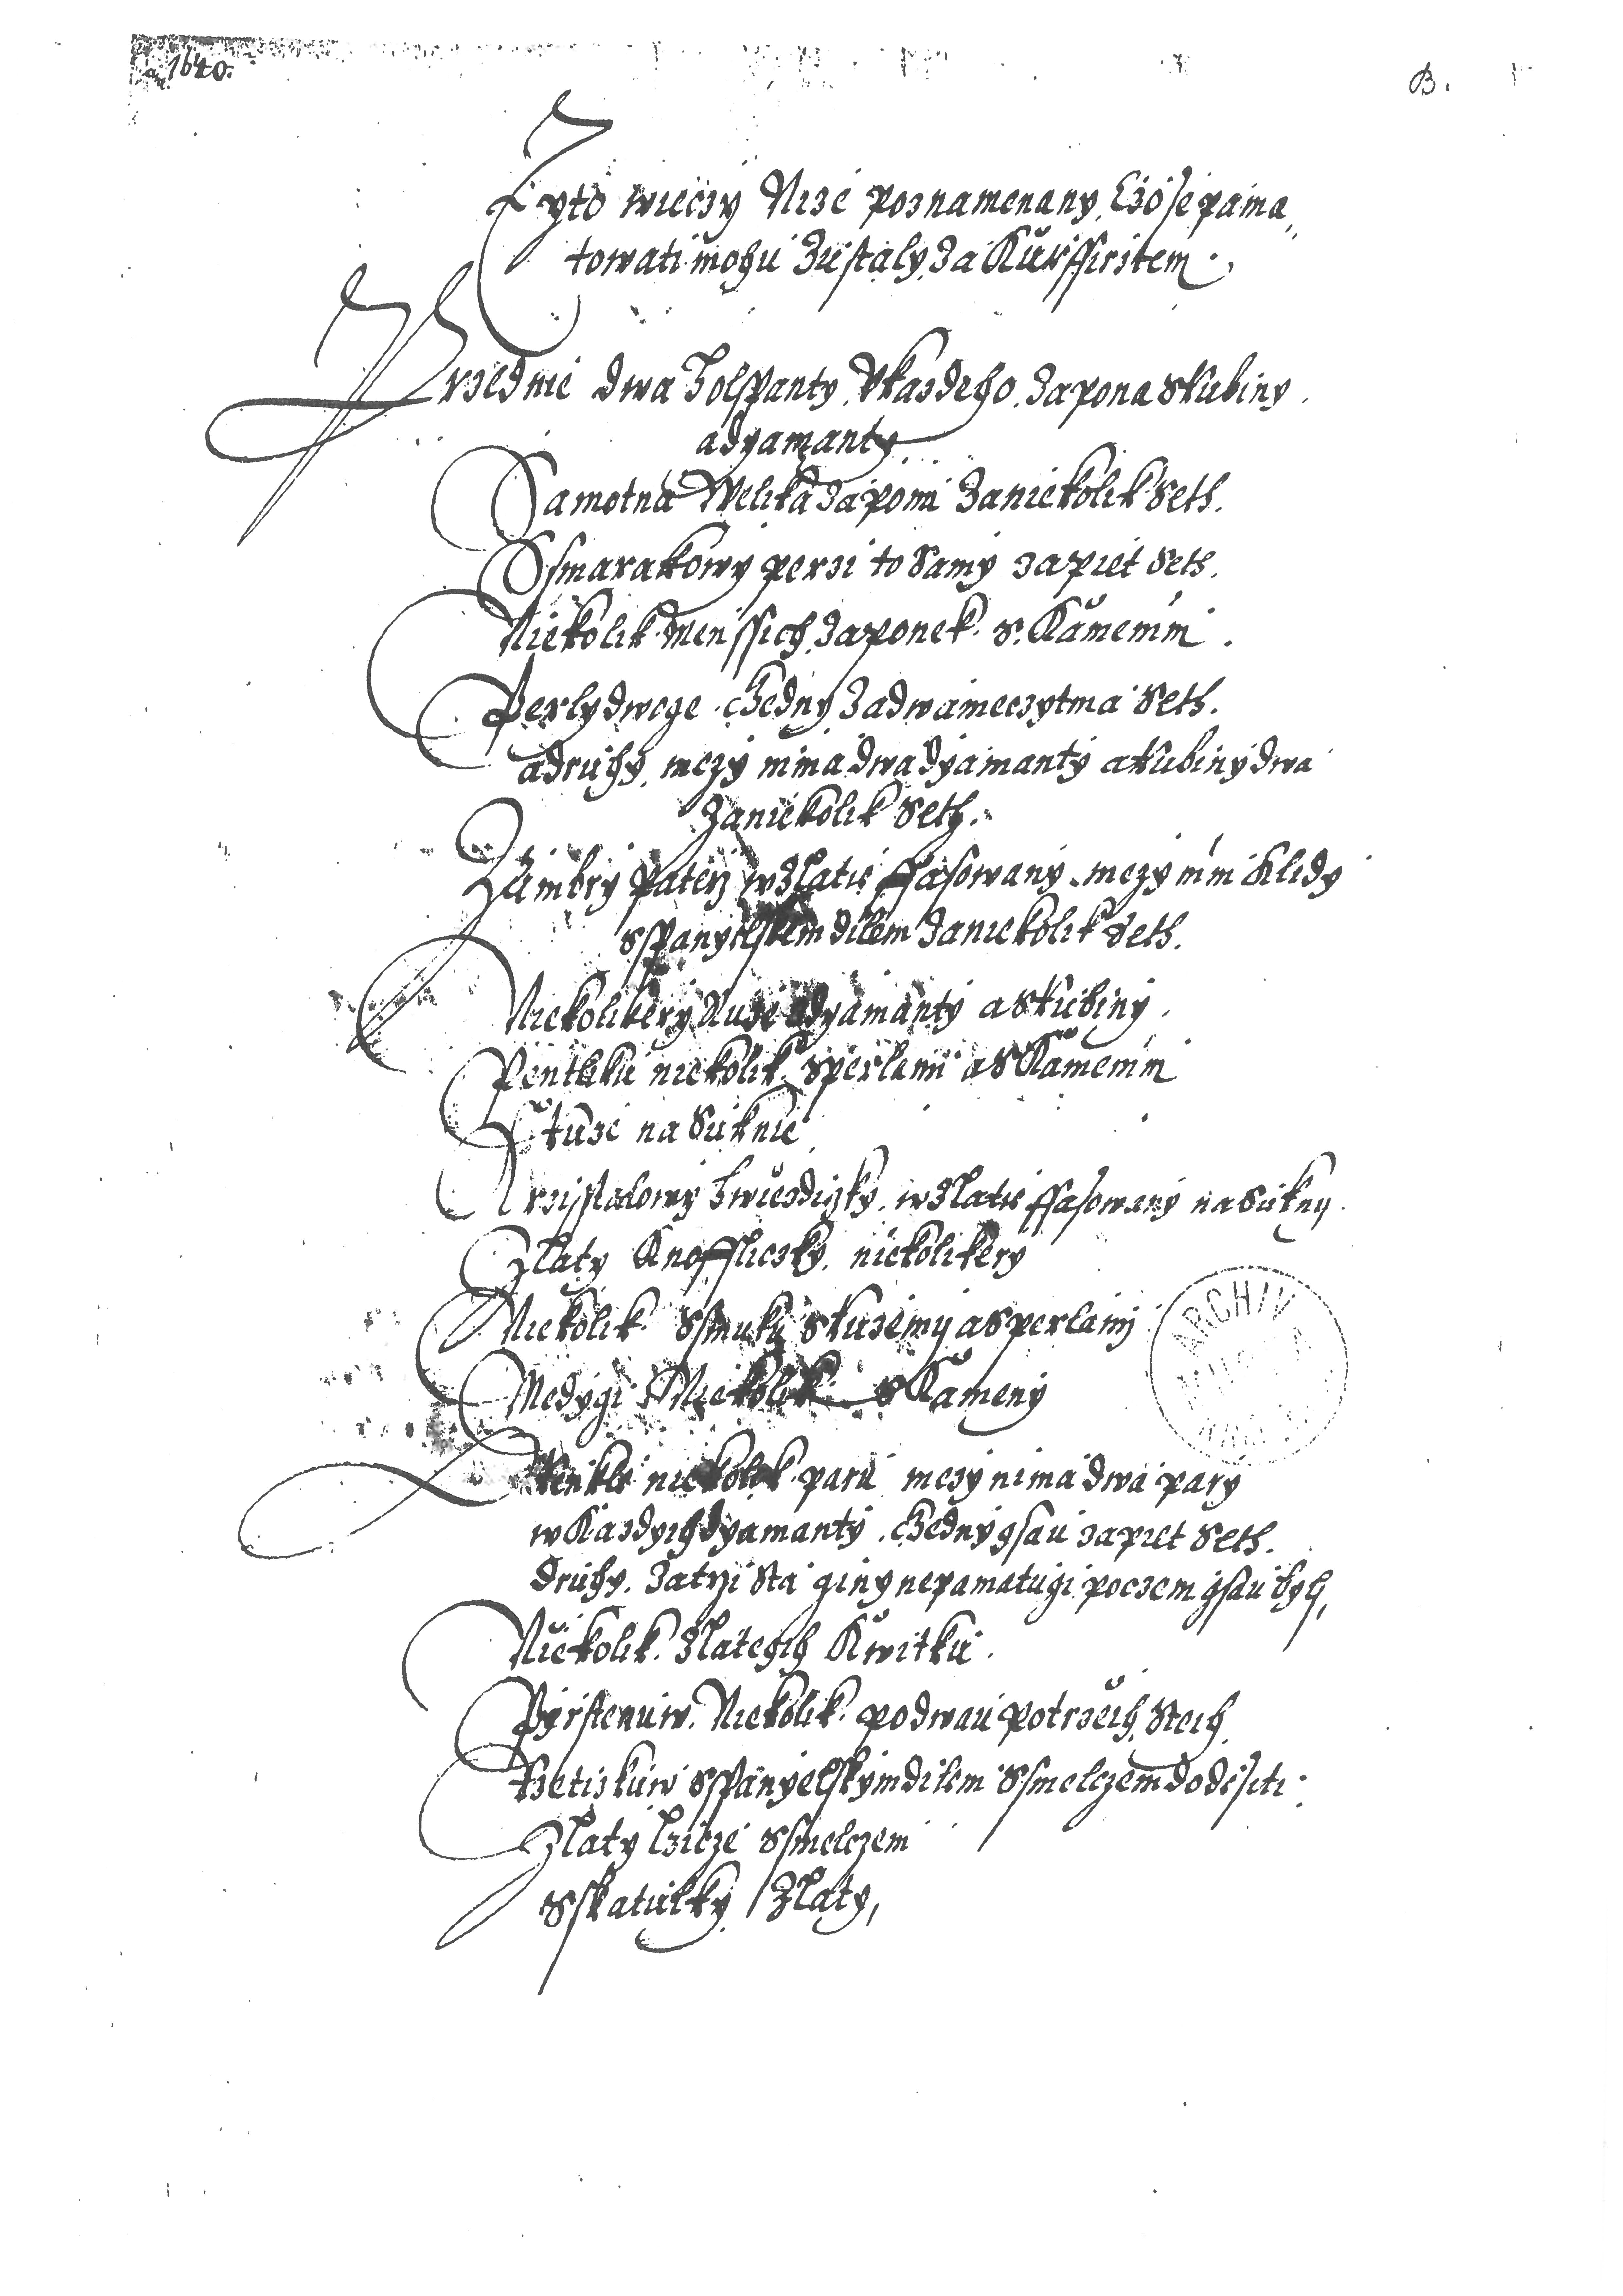 1640.
B.
Tyto wieczy Nize poznamenany, Czo se pama„
towati mohu Zustaly Za Kurffirstem.
Przednie dwa Holspanty. Ukazdeho. Zapona s Rubiny
a dyamanty.
Samotna Welika Zapona Zaniekolik Seth.
Ssmarakowy perzi to Samy zapiet Seth.
Niekolik Menssich Zaponek s. Kamenim.
Perly dwoge. Gedny Zadwamezytma Seth.
a druhy, mezy nima dwa dyamanty a Rubiny dwa
Zaniekolik Seth.
Zambry patery w Zlatie ffasowany mezy nimi
sspanyelskem dilem Zaniekolik Seth.
Niekolikery Ruze dyamanty a s Rubiny.
Pentliku niekolik, s perlami a s Kamenim
Ruze na Suknie
Krzisstalowy Hwiezdizky, w Zlatie ffasowany na Sukny.
Zlaty Knoffliczky, niekolikery
Niekolik Ssmuku s Ruzemy a s perlamy
Niekolik s Kameny
niekolik paru mezy nima dwa pary
w Kazdych dyamanty. Gedny gsau zapiet Seth.
druhy. Zatrzi Sta giny nepamatugi poczem gsau byly,
Niekolik. Zlateych Kwitku.
Pyrstenuw. Niekolik. po dwau po trzech Stech.
Rzetizkuw Sspanyelskym dilem Ssmelczem do desiti.
Zlaty lzicze Ssmelczem
Sskatulky Zlaty,
ARCHIV